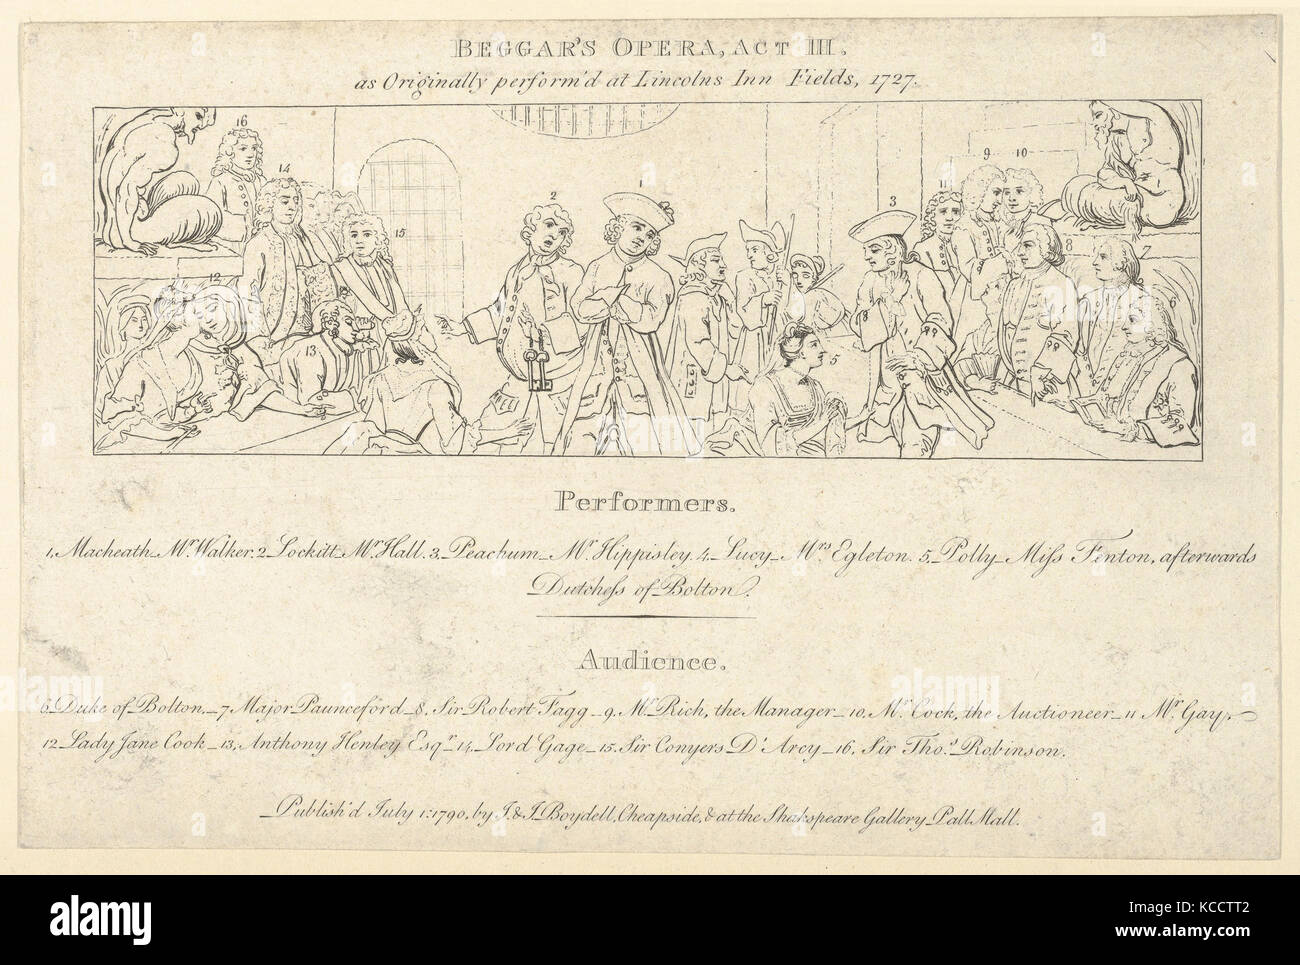 BEGGAR'S OPERA, ACT III.
as Originally perform'd at Lincolns Inn Fields, 1727.
16
14
15
12
13
2
1
3
5
11
9
10
8
7
6
Performers.
1, Macheath_Mr. Walker. 2_Lockitt_Mr. Hall. 3_Peachum_Mr. Hippisley. 4_Lucy_Mrs. Egleton. 5_Polly_Miss Fenton, afterwards
Dutchess of Bolton.
Audience.
6_Duke of Bolton_7_Major Paunceford_8. Sir Robert Fagg_9. Mr. Rich, the Manager_10. Mr. Cock, the Auctioneer_11 Mr. Gay,
12_Lady Jane Cook_13, Anthony Henley Esqr. 14_Lord Gage_15. Sir Conyers D'Arcy_16. Sir Thos. Robinson.
Publish'd July 1: 1790, by J. & J. Boydell, Cheapside, & at the Shakspeare Gallery Pall Mall.
alamy
Image ID: KCCTT2
www.alamy.com